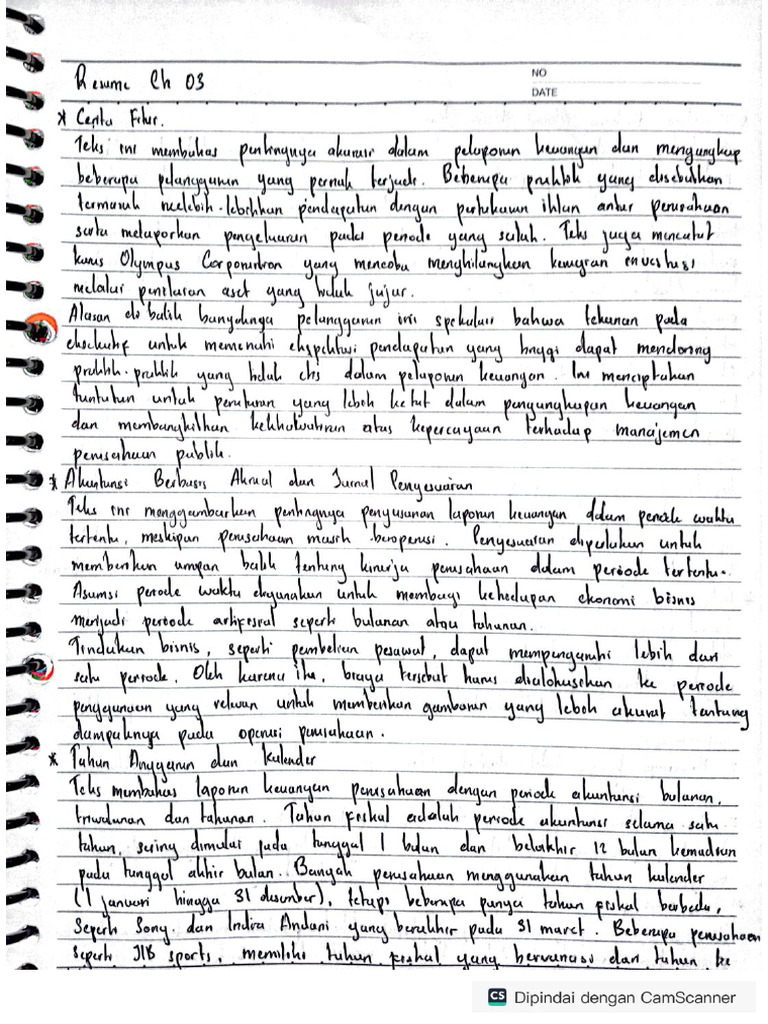 Resume Ch 03
NO
DATE
* Cerita Fitur.
Teks ini membahas pentingnya akurasi dalam pelaporan keuangan dan mengungkap
beberapa pelanggaran yang pernah terjadi. Beberapa praktik yang disebutkan
termasuk melebih-lebihkan pendapatan dengan pertukaran iklan antar perusahaan
serta melaporkan pengeluaran pada periode yang salah. Teks juga mencatat
kasus Olympus Corporation yang mencoba menghilangkan kerugian investasi
melalui penilaian aset yang tidak jujur.
Alasan di balik banyaknya pelanggaran ini spekulasi bahwa tekanan pada
eksekutif untuk memenuhi ekspektasi pendapatan yang tinggi dapat mendorong
praktik-praktik yang tidak etis dalam pelaporan keuangan. Ini menciptakan
tuntutan untuk peraturan yang lebih ketat dalam pengungkapan keuangan
dan membangkitkan kekhawatiran atas kepercayaan terhadap manajemen
perusahaan publik.
* Akuntansi Berbasis Akrual dan Jurnal Penyesuaian
Teks ini menggambarkan pentingnya penyusunan laporan keuangan dalam periode waktu
tertentu, meskipun perusahaan masih beroperasi. Penyesuaian diperlukan untuk
memberikan umpan balik tentang kinerja perusahaan dalam periode tertentu.
Asumsi periode waktu digunakan untuk membagi kehidupan ekonomi bisnis
menjadi periode artifisial seperti bulanan atau tahunan.
Tindakan bisnis, seperti pembelian pesawat, dapat mempengaruhi lebih dari
satu periode. Oleh karena itu, biaya tersebut harus dialokasikan ke periode
penggunaan yang relevan untuk memberikan gambaran yang lebih akurat tentang
dampaknya pada operasi perusahaan.
* Tahun Anggaran dan Kalender
Teks membahas laporan keuangan perusahaan dengan periode akuntansi bulanan,
triwulanan dan tahunan. Tahun fiskal adalah periode akuntansi selama satu
tahun, sering dimulai pada tanggal 1 bulan dan berakhir 12 bulan kemudian
pada tanggal akhir bulan. Banyak perusahaan menggunakan tahun kalender
(1 januari hingga 31 desember), tetapi beberapa punya tahun fiskal berbeda,
Seperti Sony. dan Indira Andani yang berakhir pada 31 maret. Beberapa perusahaan
seperti JJB sports, memiliki tahun fiskal yang bervariasi dari tahun ke
CS Dipindai dengan CamScanner